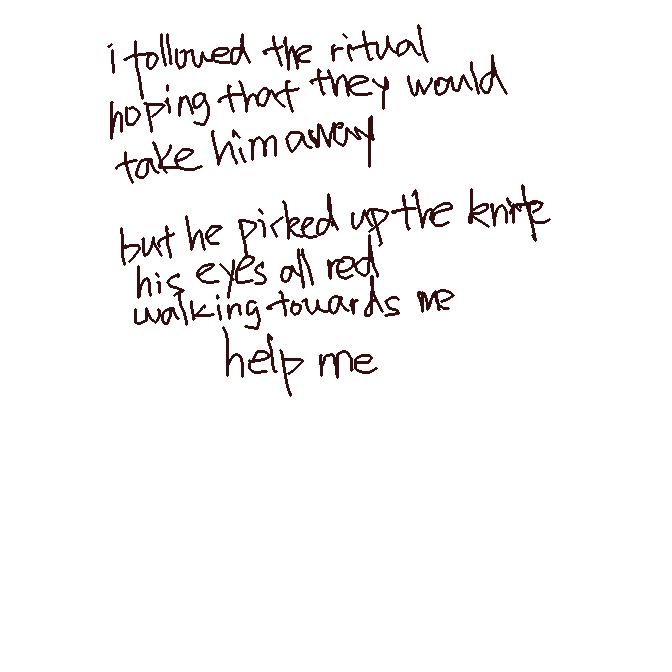 i followed the ritual
hoping that they would
take him away
but he picked up the knife
his eyes all red
walking towards me
help me